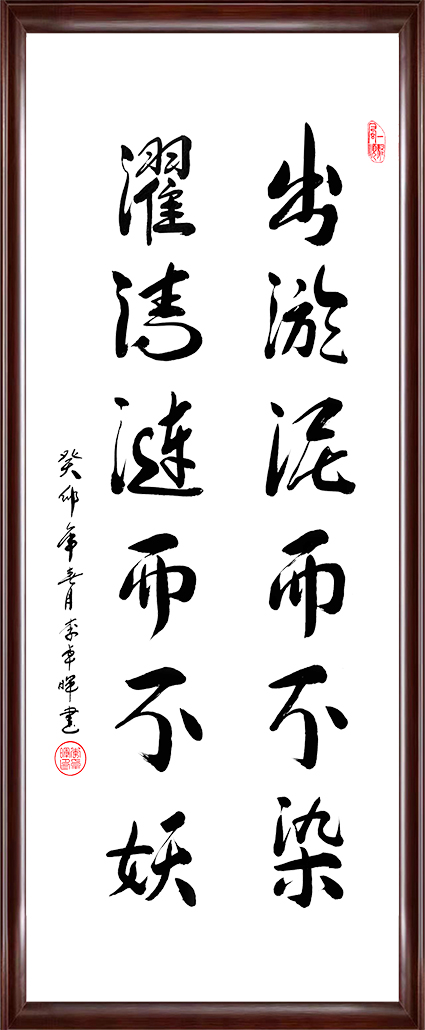 出淤泥而不染
濯清涟而不妖
癸卯年春月李卓晖書